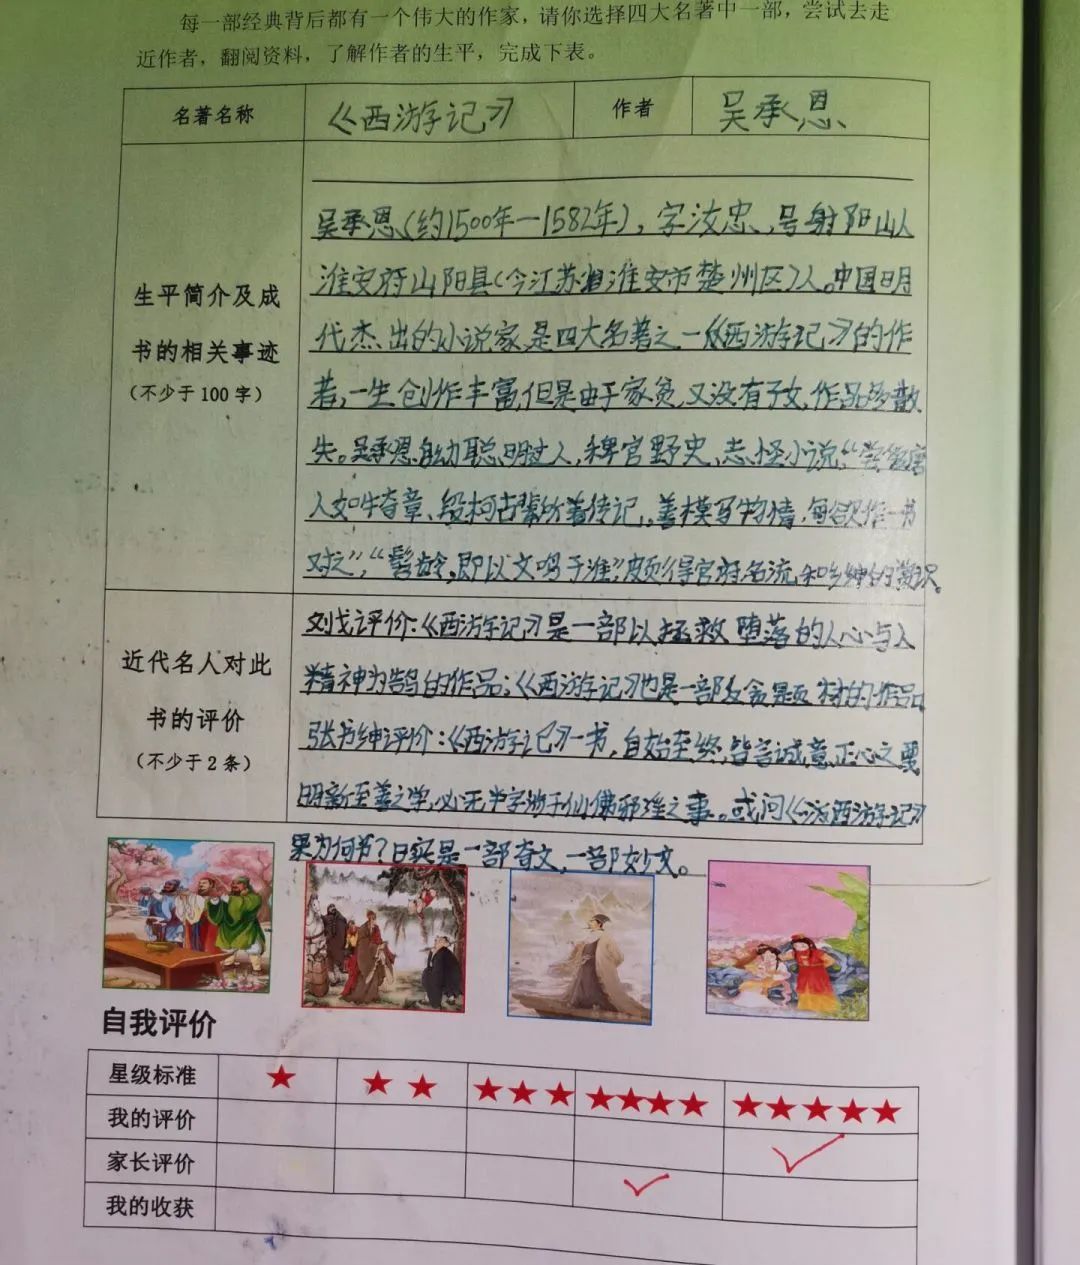 每一部经典背后都有一个伟大的作家，请你选择四大名著中一部，尝试去走
近作者，翻阅资料，了解作者的生平，完成下表。
名著名称 《西游记》 作者 吴承恩
生平简介及成
书的相关事迹
（不少于100字）
吴承恩（约1500年—1582年），字汝忠、号射阳山人
淮安府山阳县（今江苏省淮安市楚州区）人。中国明
代杰出的小说家，是四大名著之一《西游记》的作
者，一生创作丰富，但是由于家贫，又没有子女，作品多散
失。吴承恩自幼聪明过人，稗官野史、志怪小说，“尝爱唐
人如牛奇章、段柯古辈所著传记，善模写物情，每欲作一书
对之”，“髫龄，即以文鸣于淮”颇得官府名流和乡绅的赏识。
近代名人对此
书的评价
（不少于2条）
刘戈评价：《西游记》是一部以拯救堕落的人心与人
精神为鹄的作品；《西游记》也是一部反贪题材的作品
张书绅评价：《西游记》一书，自始至终，皆言诚意正心之要
明新至善之学，必无半字涉于仙佛邪淫之事。或问《西游记》
果为何书？曰实是一部奇文，一部妙文。
自我评价
星级标准 ★ ★★ ★★★ ★★★★ ★★★★★
我的评价
家长评价
我的收获